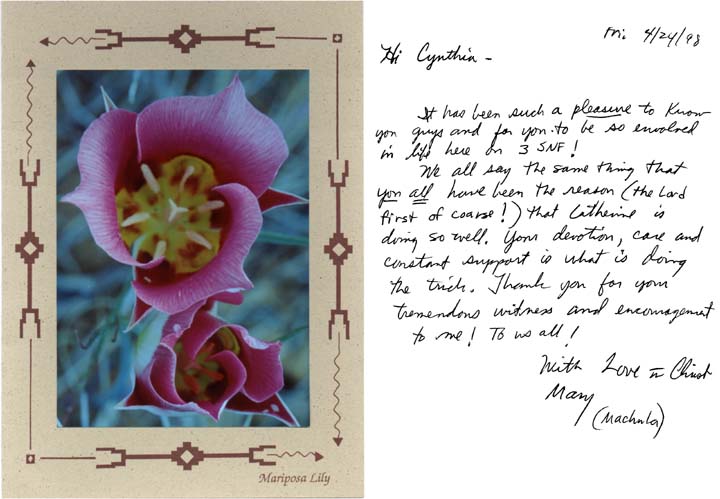 Mariposa Lily
Fri 4/24/98
Hi Cynthia -
It has been such a pleasure to know
you guys and for you to be so envolved
in life here on 3 SNF!
We all say the same thing that
you all have been the reason (the Lord
first of coarse!) that Catherine is
doing so well. Your devotion, care and
constant support is what is doing
the trick. Thank you for your
tremendous witness and encouragement
to me! To us all!
With Love in Christ
Mary